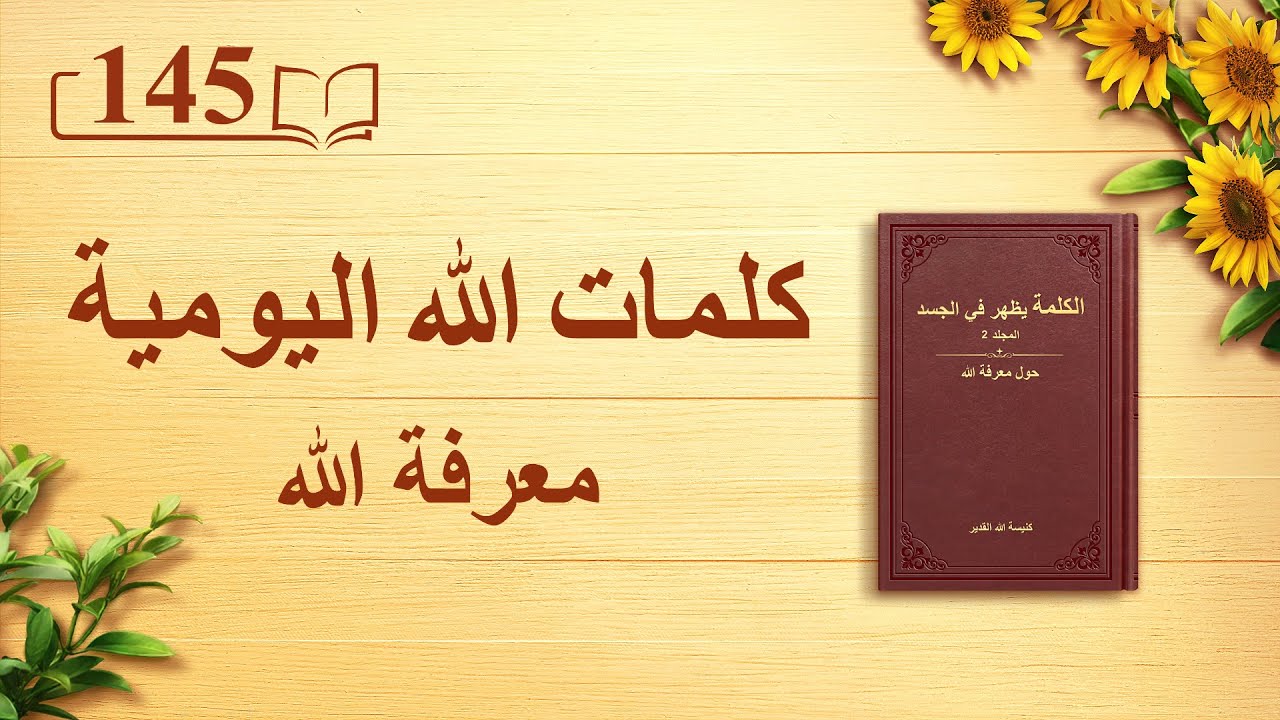 145
كلمات الله اليومية
معرفة الله
الكلمة يظهر في الجسد
المجلد 2
حول معرفة الله
كنيسة الله القدير